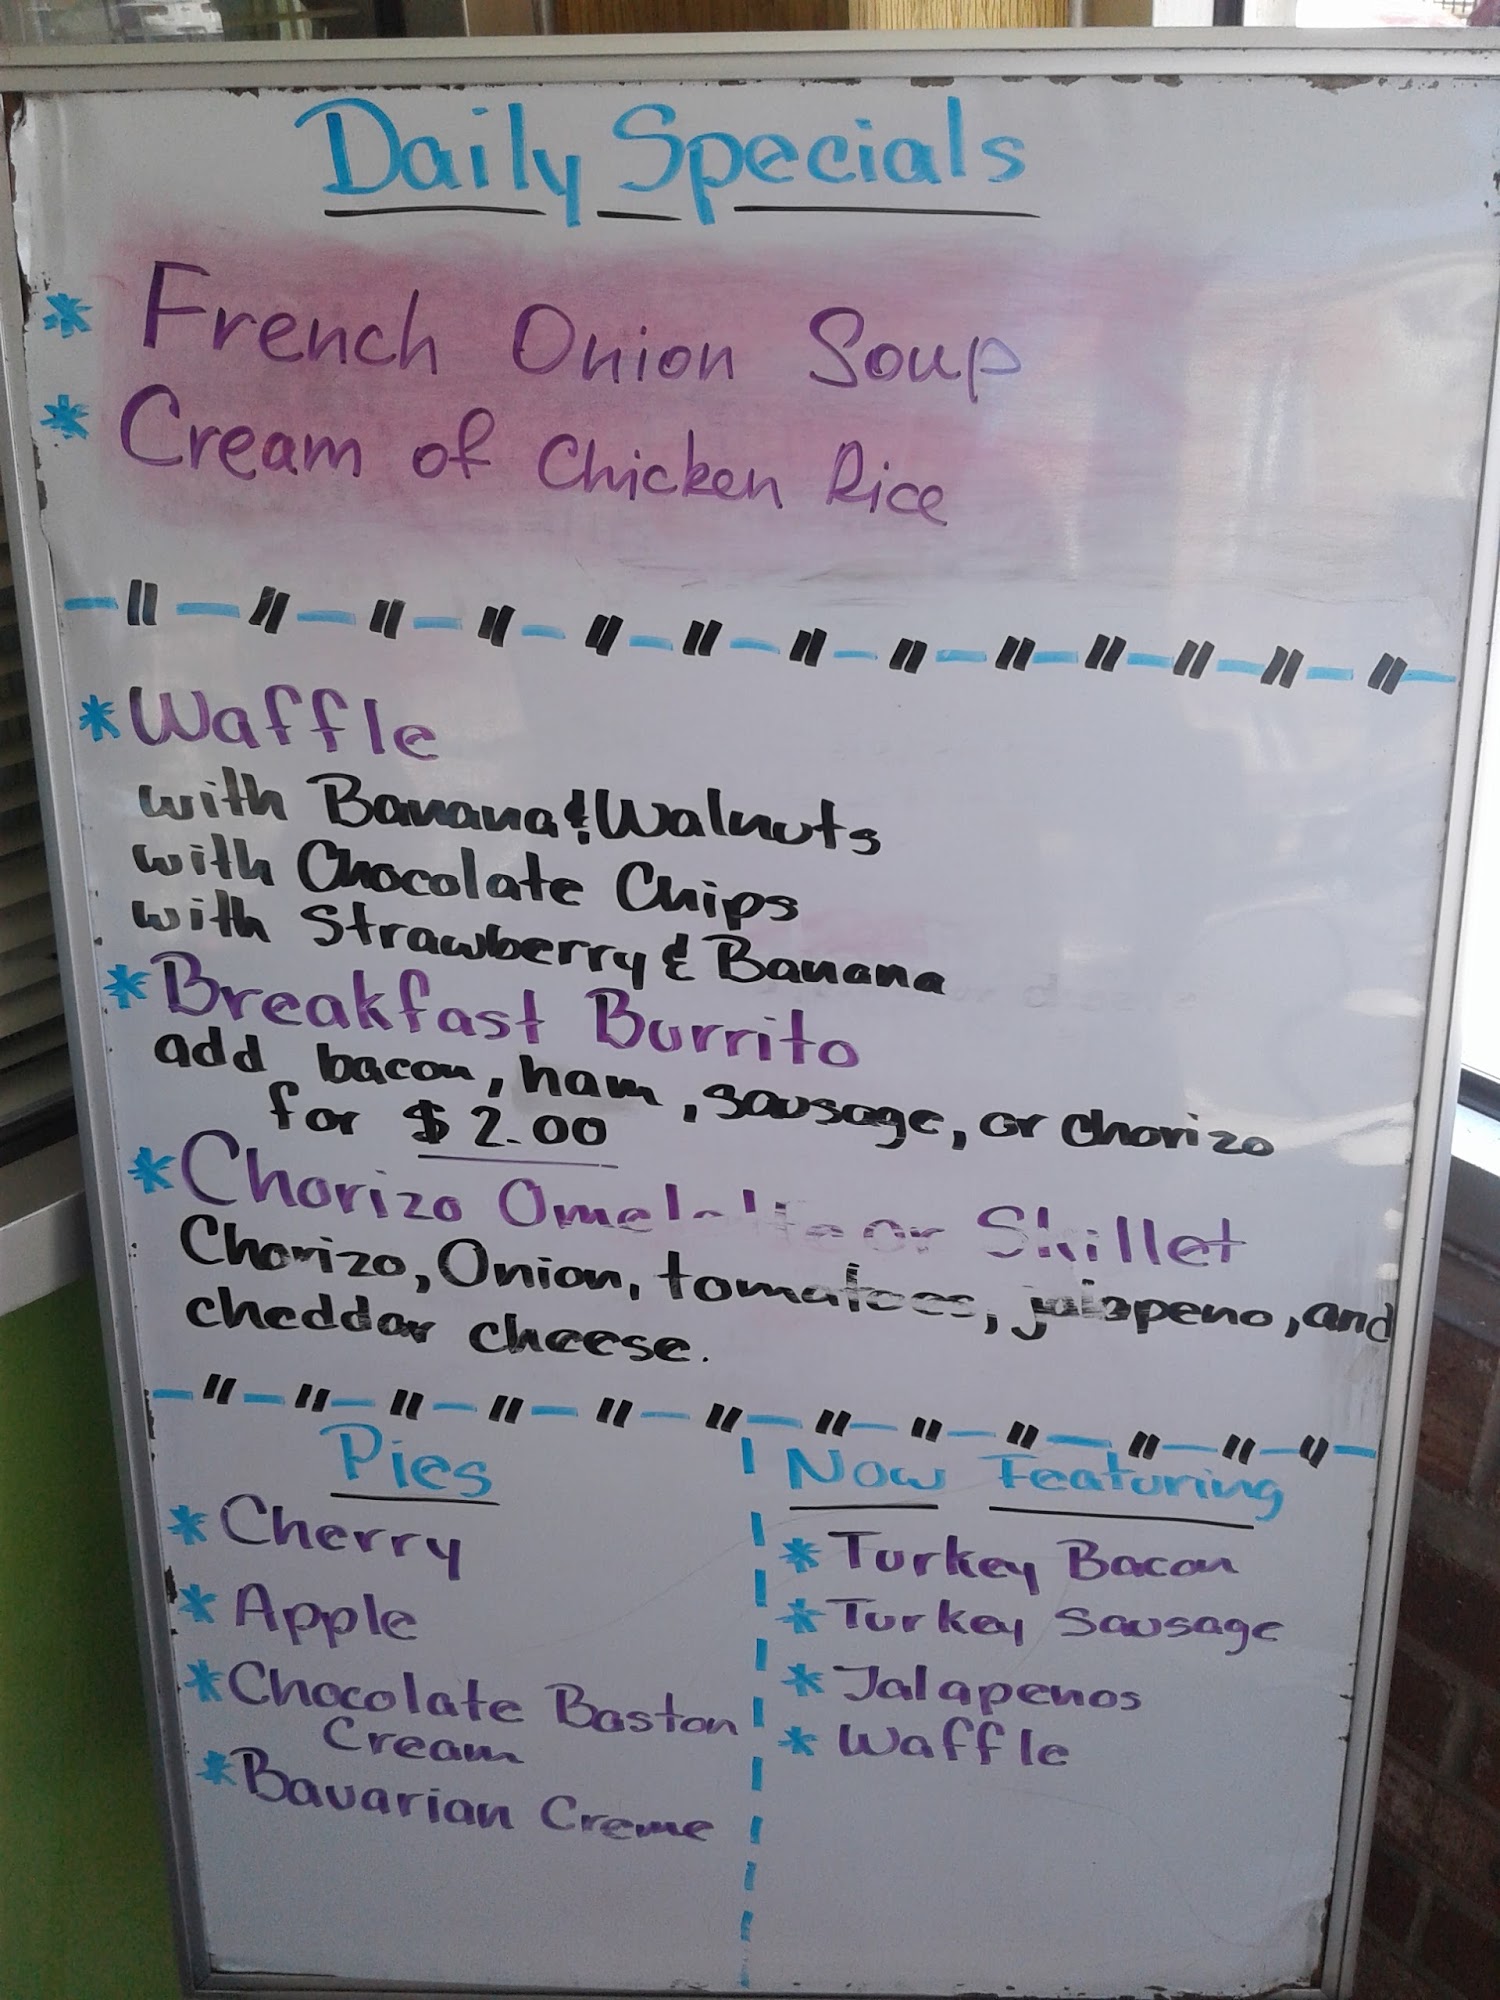 Daily Specials
* French Onion Soup
* Cream of Chicken Rice
* Waffle
with Banana & Walnuts
with Chocolate Chips
with Strawberry & Banana
* Breakfast Burrito
add bacon, ham, sausage, or chorizo
for $2.00
* Chorizo Omelette or Skillet
Chorizo, Onion, tomatoes, jalapeno, and
cheddar cheese.
Pies
* Cherry
* Apple
* Chocolate Boston
Cream
* Bavarian Creme
Now Featuring
* Turkey Bacon
* Turkey Sausage
* Jalapenos
* Waffle